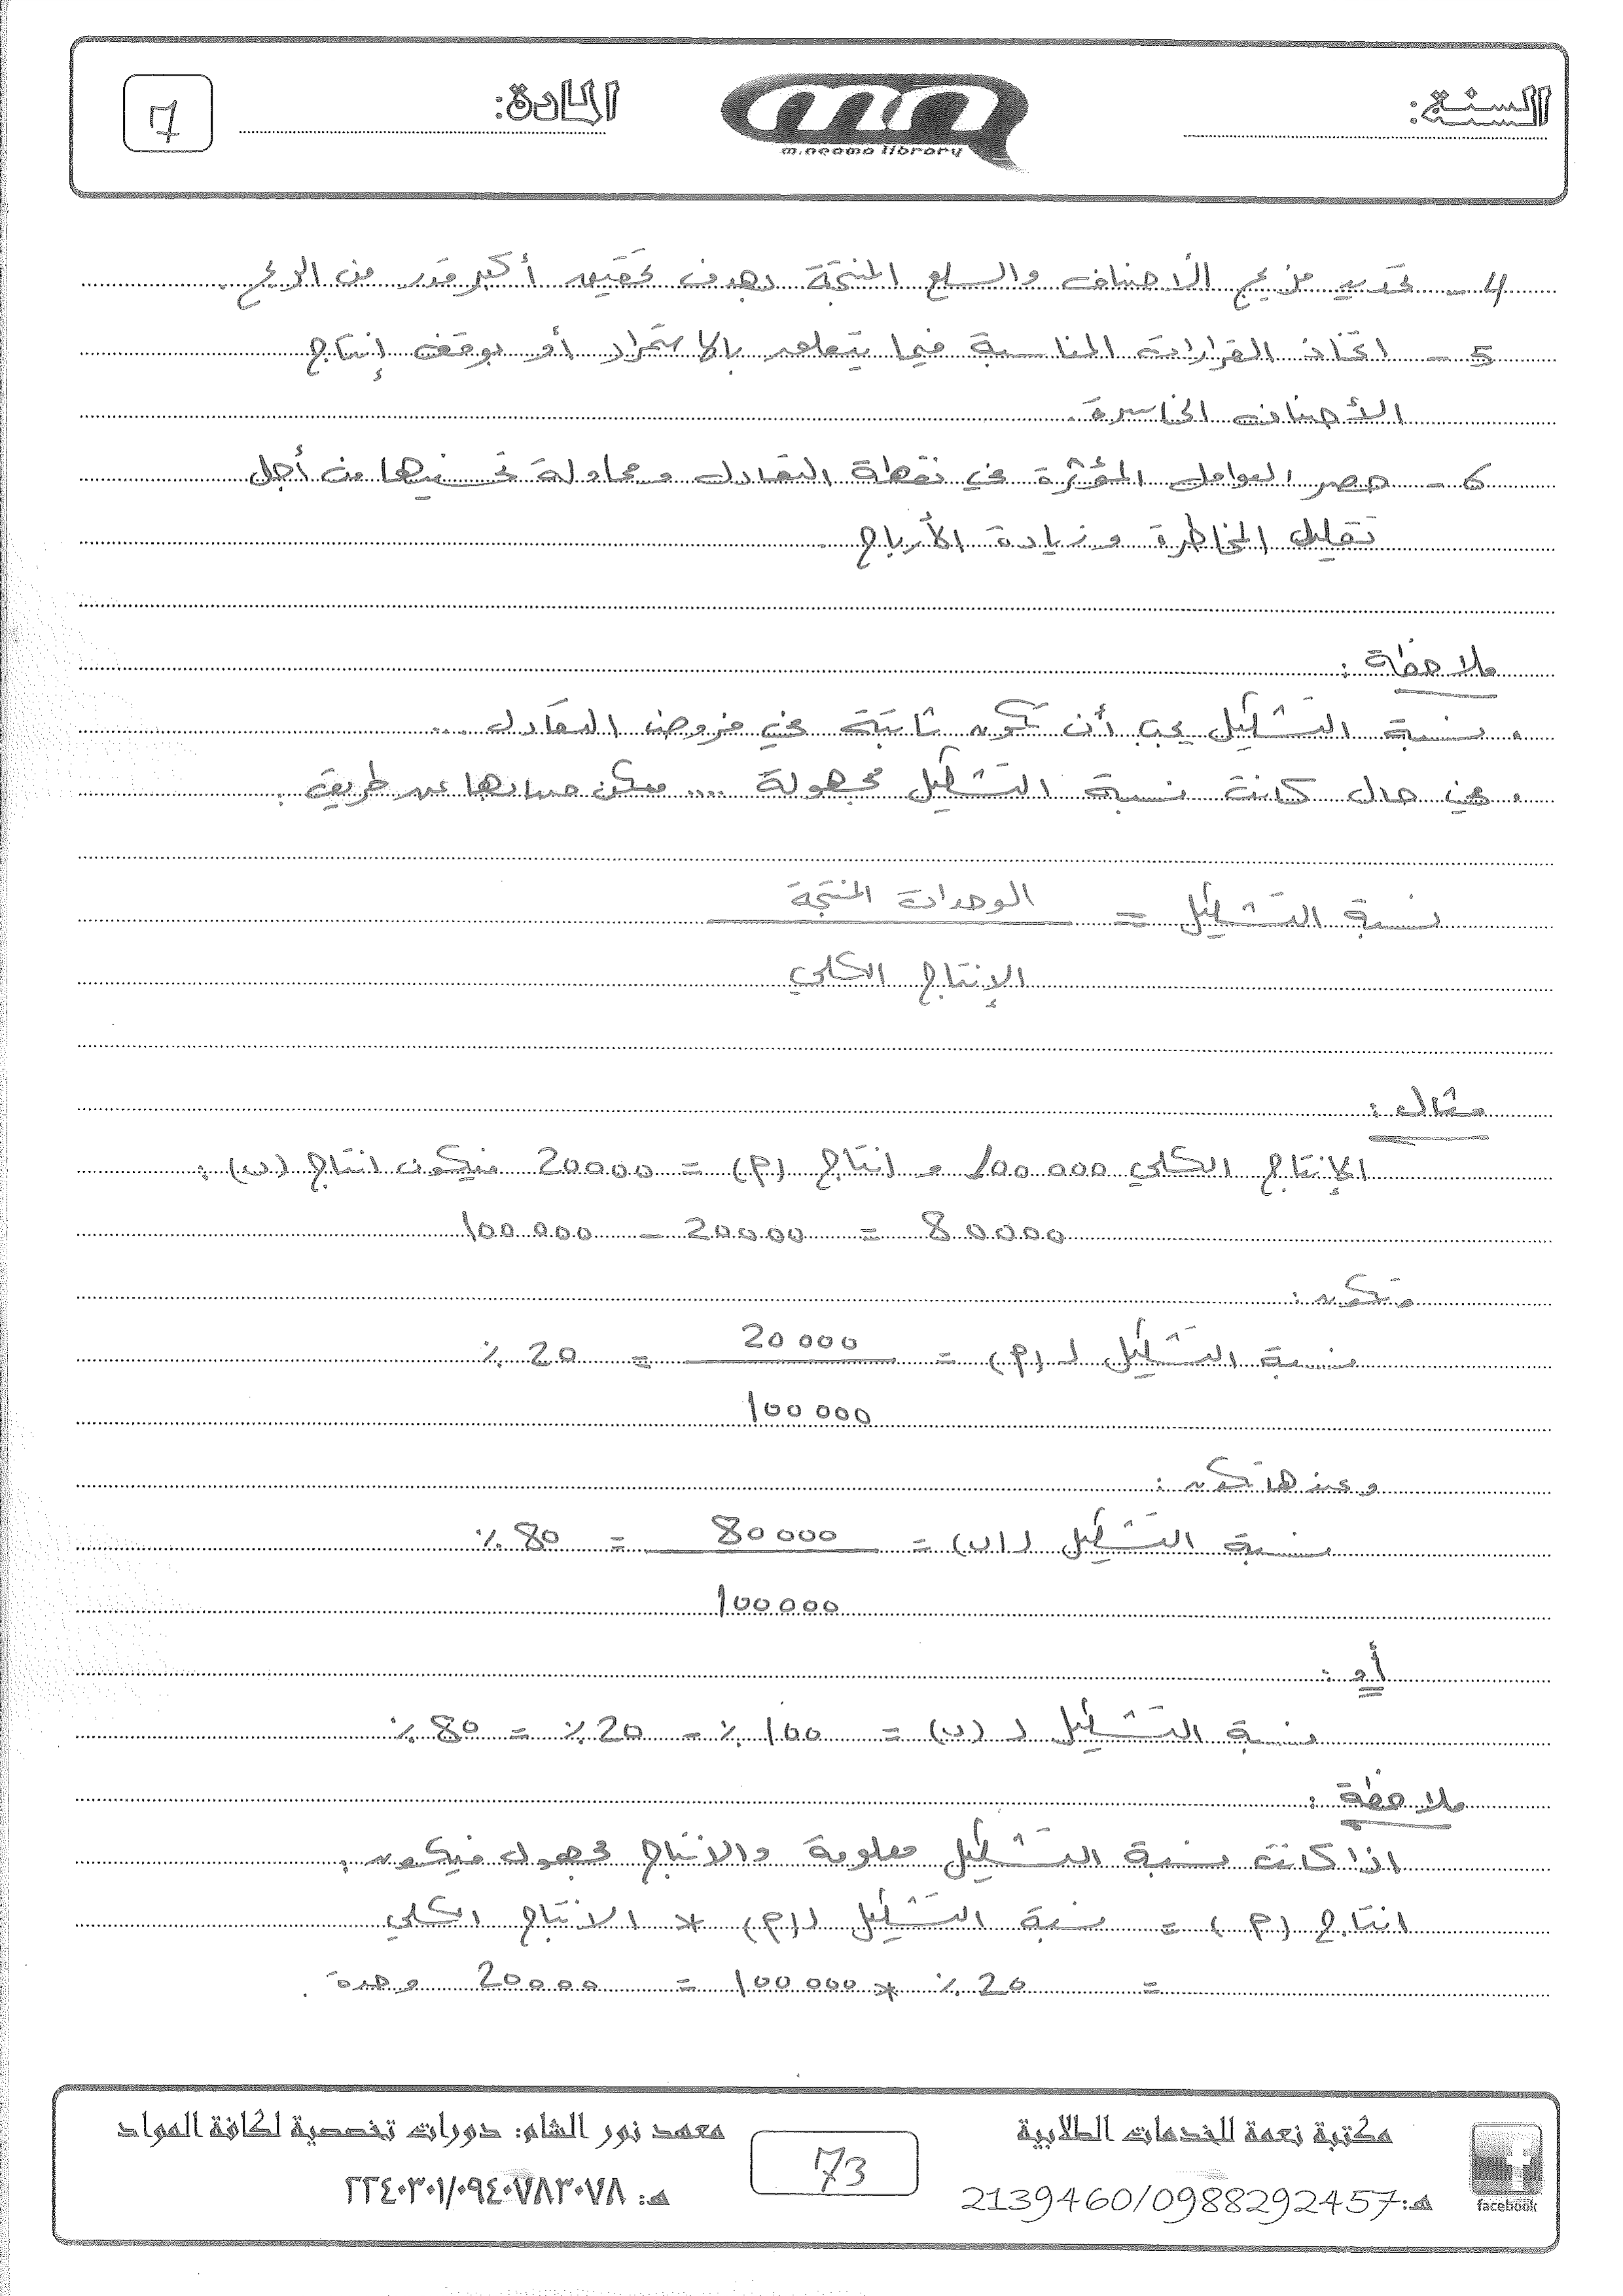 السنة:
m.neama library
المادة:
7
4 - تحديد مزيج الأصناف والسلع المنتجة بهدف تحقيق أكبر قدر من الربح.
5 - اتخاذ القرارات المناسبة فيما يتعلق بالاستمرار أو بوقف إنتاج
الأصناف الخاسرة.
6 - حصر العوامل المؤثرة في نقطة التعادل ومحاولة تحسينها من أجل
تقليل المخاطرة وزيادة الأرباح.
ملاحظة:
. نسبة التشكيل يجب أن تكون ثابتة في فروض التعادل ...
. في حال كانت نسبة التشكيل مجهولة .... ممكن حسابها عن طريق:
الوحدات المنتجة
نسبة التشكيل = ـــــــــــ
الإنتاج الكلي
مثال:
الإنتاج الكلي 100 000 و انتاج (م) = 20000 فيكون انتاج (ب):
100 000 - 20000 = 80000
وتكون:
20 000
نسبة التشكيل لـ (م) = ـــــــــــ = 20 %
100 000
وعندها تكون:
80 000
نسبة التشكيل لـ (ب) = ـــــــــــ = 80 %
100 000
أو:
نسبة التشكيل لـ (ب) = 100 % - 20 % = 80 %
ملاحظة:
اذا كانت نسبة التشكيل معلومة والانتاج مجهول فيكون:
انتاج (م) = نسبة التشكيل لـ (م) * الانتاج الكلي
= 20 % * 100 000 = 20000 وحدة.
مكتبة نعمة للخدمات الطلابية
هـ: 2139460/0988292457
facebook
73
معهد نور الشام: دورات تخصصية لكافة المواد
هـ: ٢٢٤٠٣٠١/٠٩٤٠٧٨٣٠٧٨